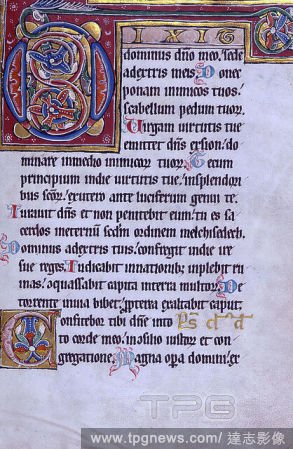 DIXIT
dominus dn̄o meo: sede
adextris meis. Donec
ponam inimicos tuos:
scabellum pedum tuor̄.
Virgam virtutis tue
emittet dn̄s ex sion: do
minare inmedio inimicor̄ tuor̄. Tecum
principium indie virtutis tue: insplendori
bus sc̄or̄: ex utero ante luciferum genui te.
Iuravit dn̄s et non penitebit eum: tu es sa
cerdos ineternū scdm ordinem melchisedech.
Dominus adextris tuis: confregit indie ire
sue reges. Iudicabit innationib; inplebit rui
nas: conquassabit capita interra multor̄. De
torrente inuia bibet: ppterea exaltabit caput.
Confitebor tibi dn̄e into
to corde meo: insilio iustor̄ et con
gregatione. Magna opa domini: ex
TPG
www.tpgnews.com/ 達志影像